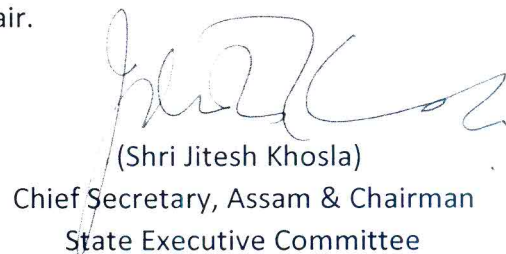 air.
(Shri Jitesh Khosla)
Chief Secretary, Assam & Chairman
State Executive Committee